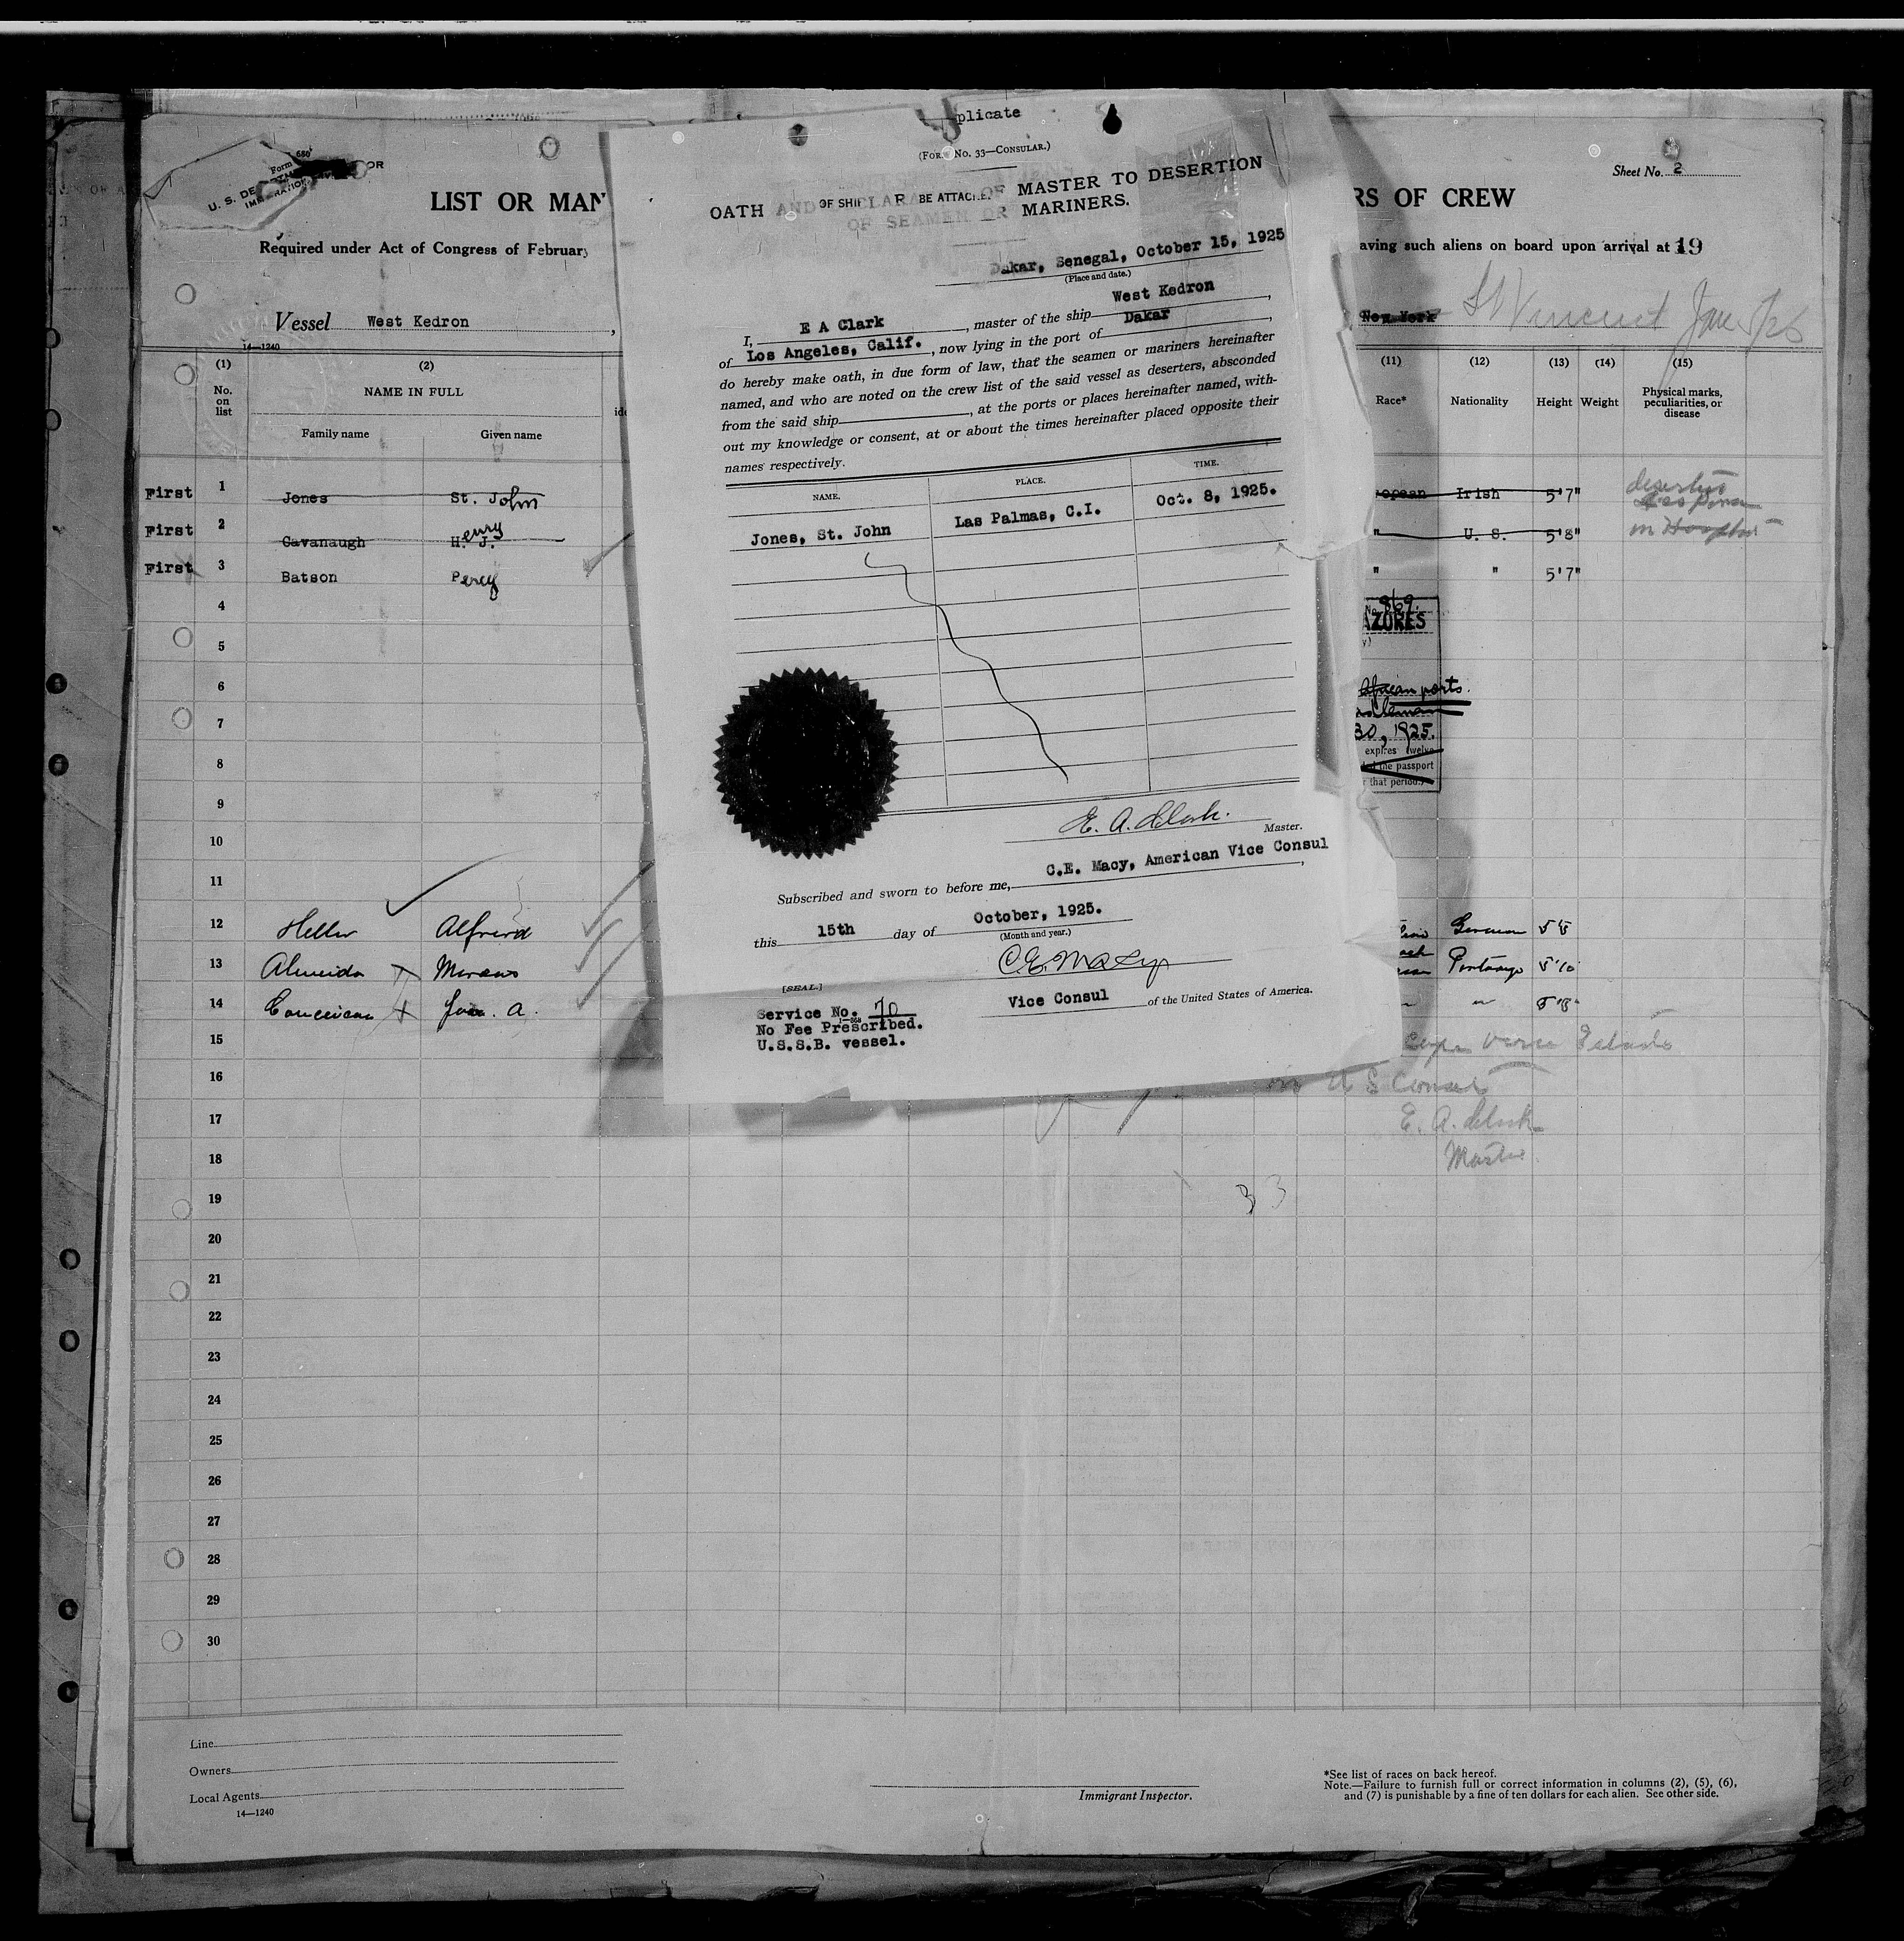 plicate
(FORM No. 33—CONSULAR.)
OATH AND OF SHIP BE ATTACHE OF MASTER TO DESERTION
OF SEAMEN OR MARINERS.
Dakar, Senegal, October 15, 1925
(Place and date.)
I, E A Clark, master of the ship West Kedron,
of Los Angeles, Calif., now lying in the port of Dakar,
do hereby make oath, in due form of law, that the seamen or mariners hereinafter
named, and who are noted on the crew list of the said vessel as deserters, absconded
from the said ship, at the ports or places hereinafter named, with-
out my knowledge or consent, at or about the times hereinafter placed opposite their
names respectively.
NAME. PLACE. TIME.
Jones, St. John Las Palmas, C.I. Oct. 8, 1925.
E. A. Clark.
Master.
Subscribed and sworn to before me, C.E. Macy, American Vice Consul,
this 15th day of October, 1925.
(Month and year.)
C.E. Macy
[SEAL.]
Vice Consul of the United States of America.
Service No. 70
1—568
No Fee Prescribed.
U.S.S.B. vessel.
Form 680
U. S. DE OR
LIST OR MAN RS OF CREW
Sheet No. 2
Required under Act of Congress of February aving such aliens on board upon arrival at 19
Vessel West Kedron, New York St Vincent Jan
14—1240
(1) (2) (11) (12) (13) (14) (15)
No. on list NAME IN FULL Race* Nationality Height Weight Physical marks, peculiarities, or disease
Family name Given name
First 1 Jones St. John opean Irish 5'7"
First 2 Cavanaugh H. J. enry " U. S. 5'8" in Hospital
First 3 Batson Percy " " 5'7"
4
No. 869.
AZORES
5
6
African ports.
7
30, 1925.
expires twelve
8
the passport
r that period.)
9
10
11
12 Heller Alfred German 5'5
13 Almeida Marcus Portuguse 5'10
14 Conceicao Joao. A. " 5'8"
15
16
in U S Consul
17
E. A. Clark
18
Master
19
33
20
21
22
23
24
25
26
27
28
29
30
Line
Owners
Local Agents
14—1240
Immigrant Inspector.
*See list of races on back hereof.
Note.—Failure to furnish full or correct information in columns (2), (5), (6),
and (7) is punishable by a fine of ten dollars for each alien. See other side.